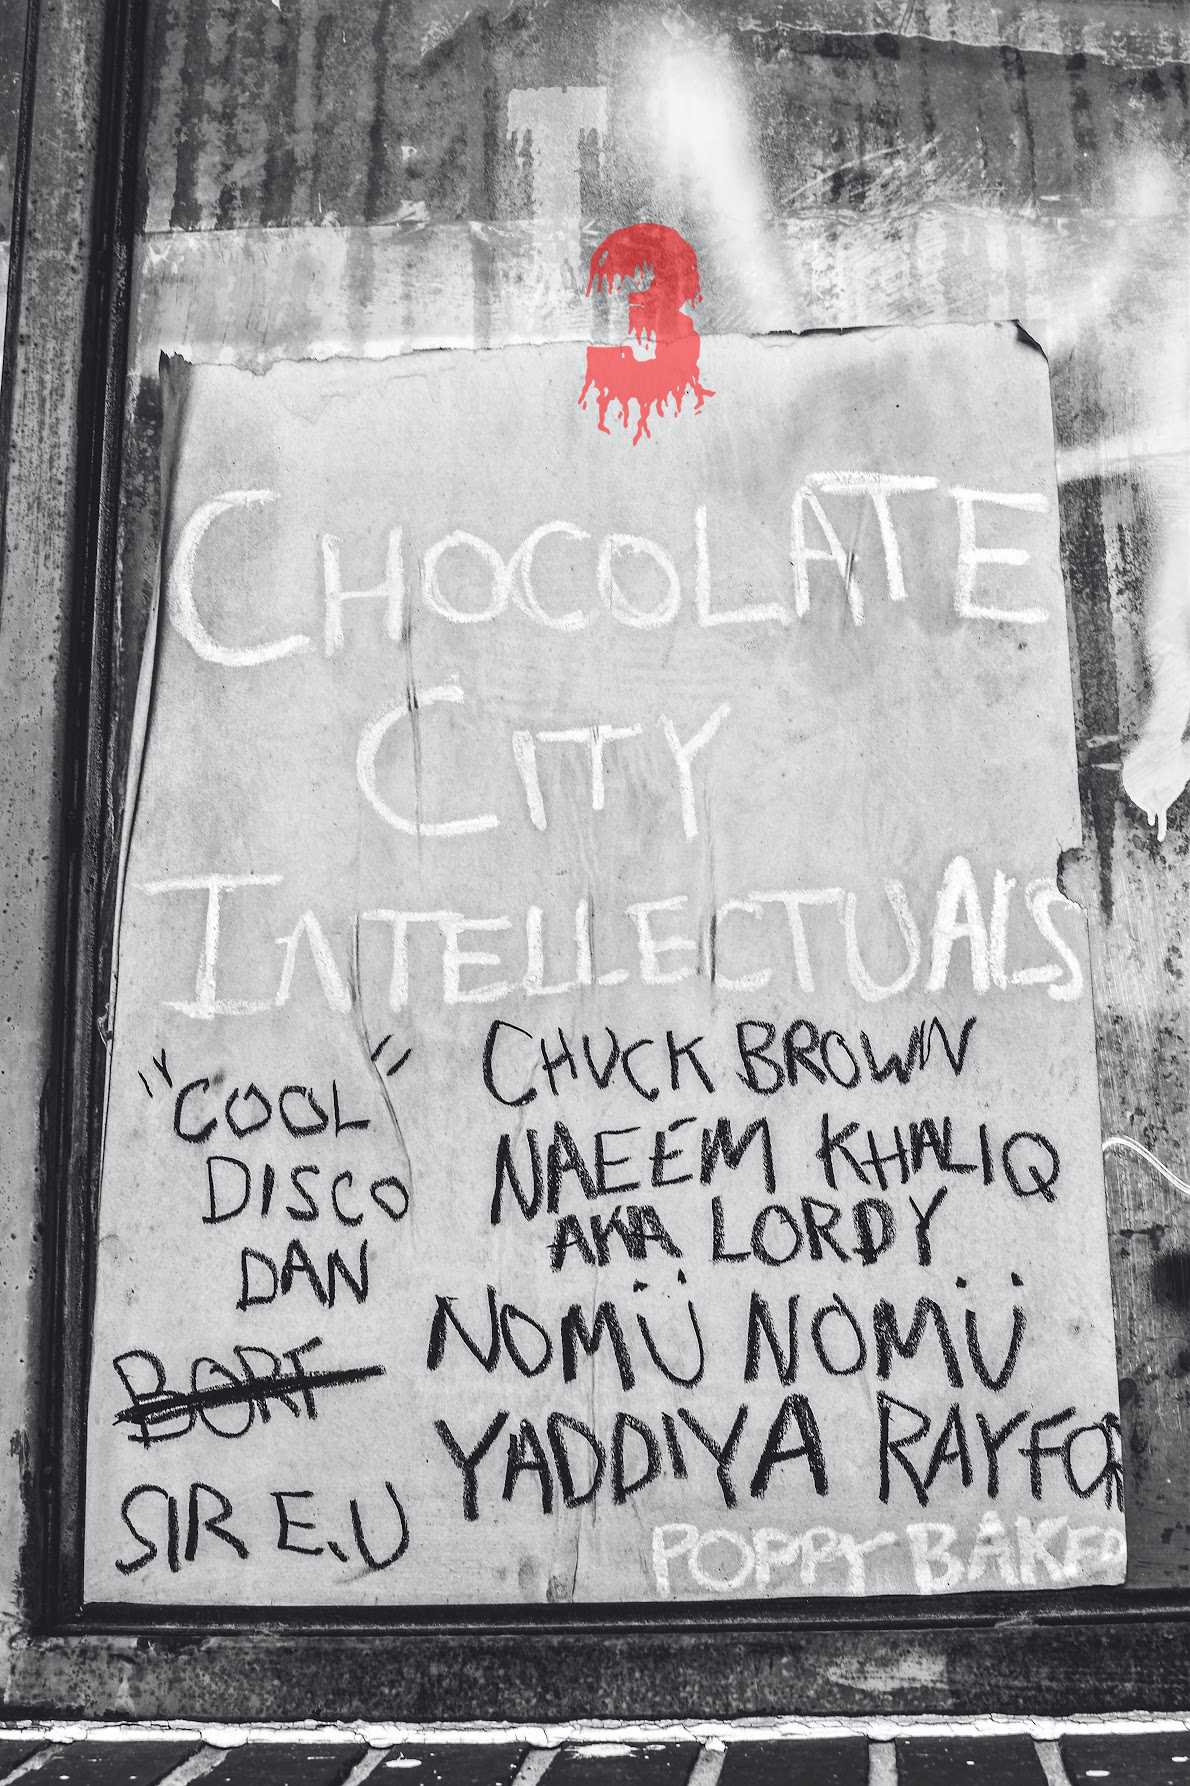 3
CHOCOLATE
CITY
INTELLECTUALS
"COOL"
DISCO
DAN
BORF
SIR E.U
CHUCK BROWN
NAEEM KHALIQ
AKA LORDY
NOMÜ NOMÜ
YADDIYA RAYFOR
POPPY BAKED